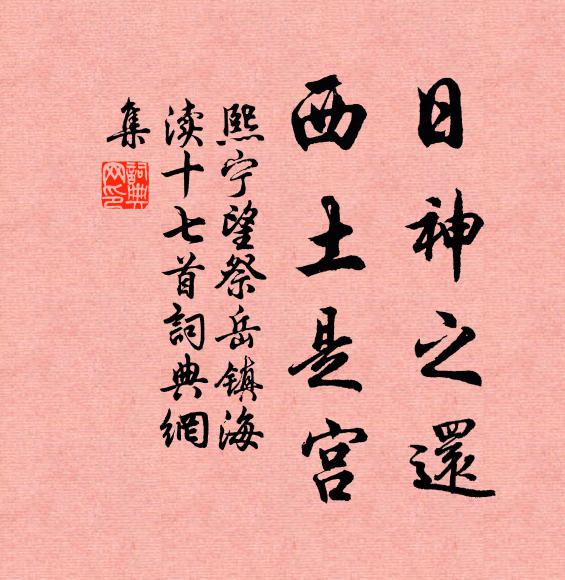 日神之還
西土是宫
熙宁望祭岳镇海
渎十七首詞典網
集
詞典
网印